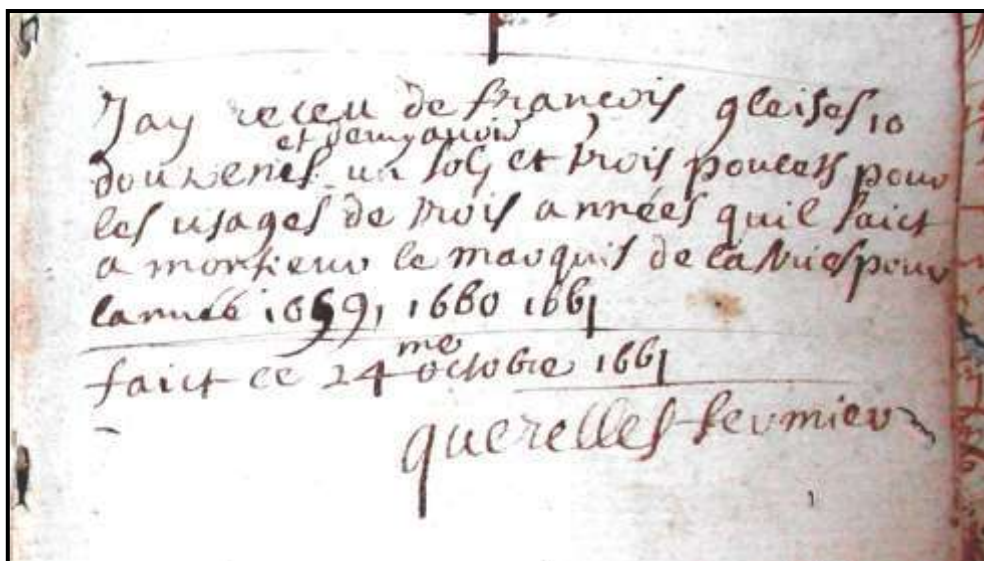 Jay receu de francois gleises 10
et demy
douzenes un sol et trois poucets pour
les usages de trois années quil faict
a monsieur le marquis de pour
lannéé 1659, 1660 1661
me
faict ce 24 octobre 1661
querelles fermier